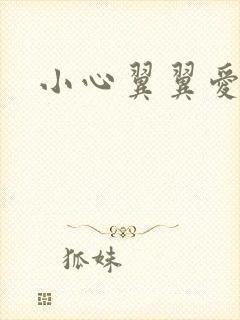 小心翼翼愛
狐妹